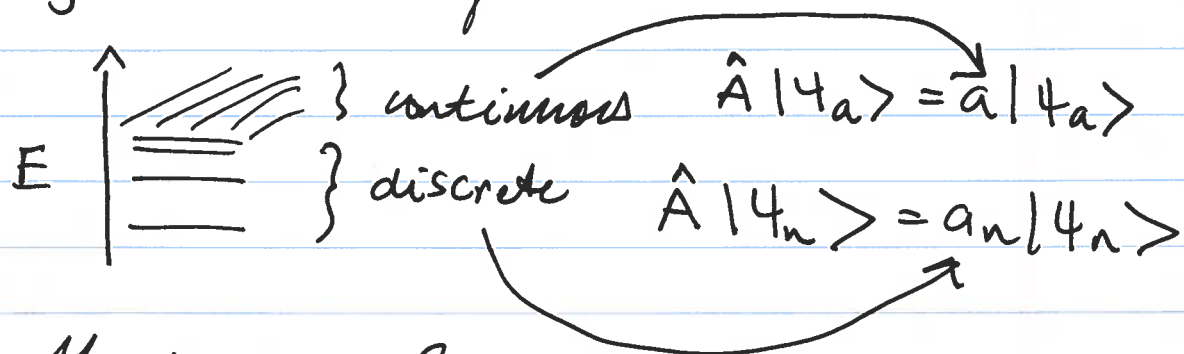 } continuous Â |ψₐ> = a |ψₐ>
E } discrete Â |ψₙ> = aₙ |ψₙ>